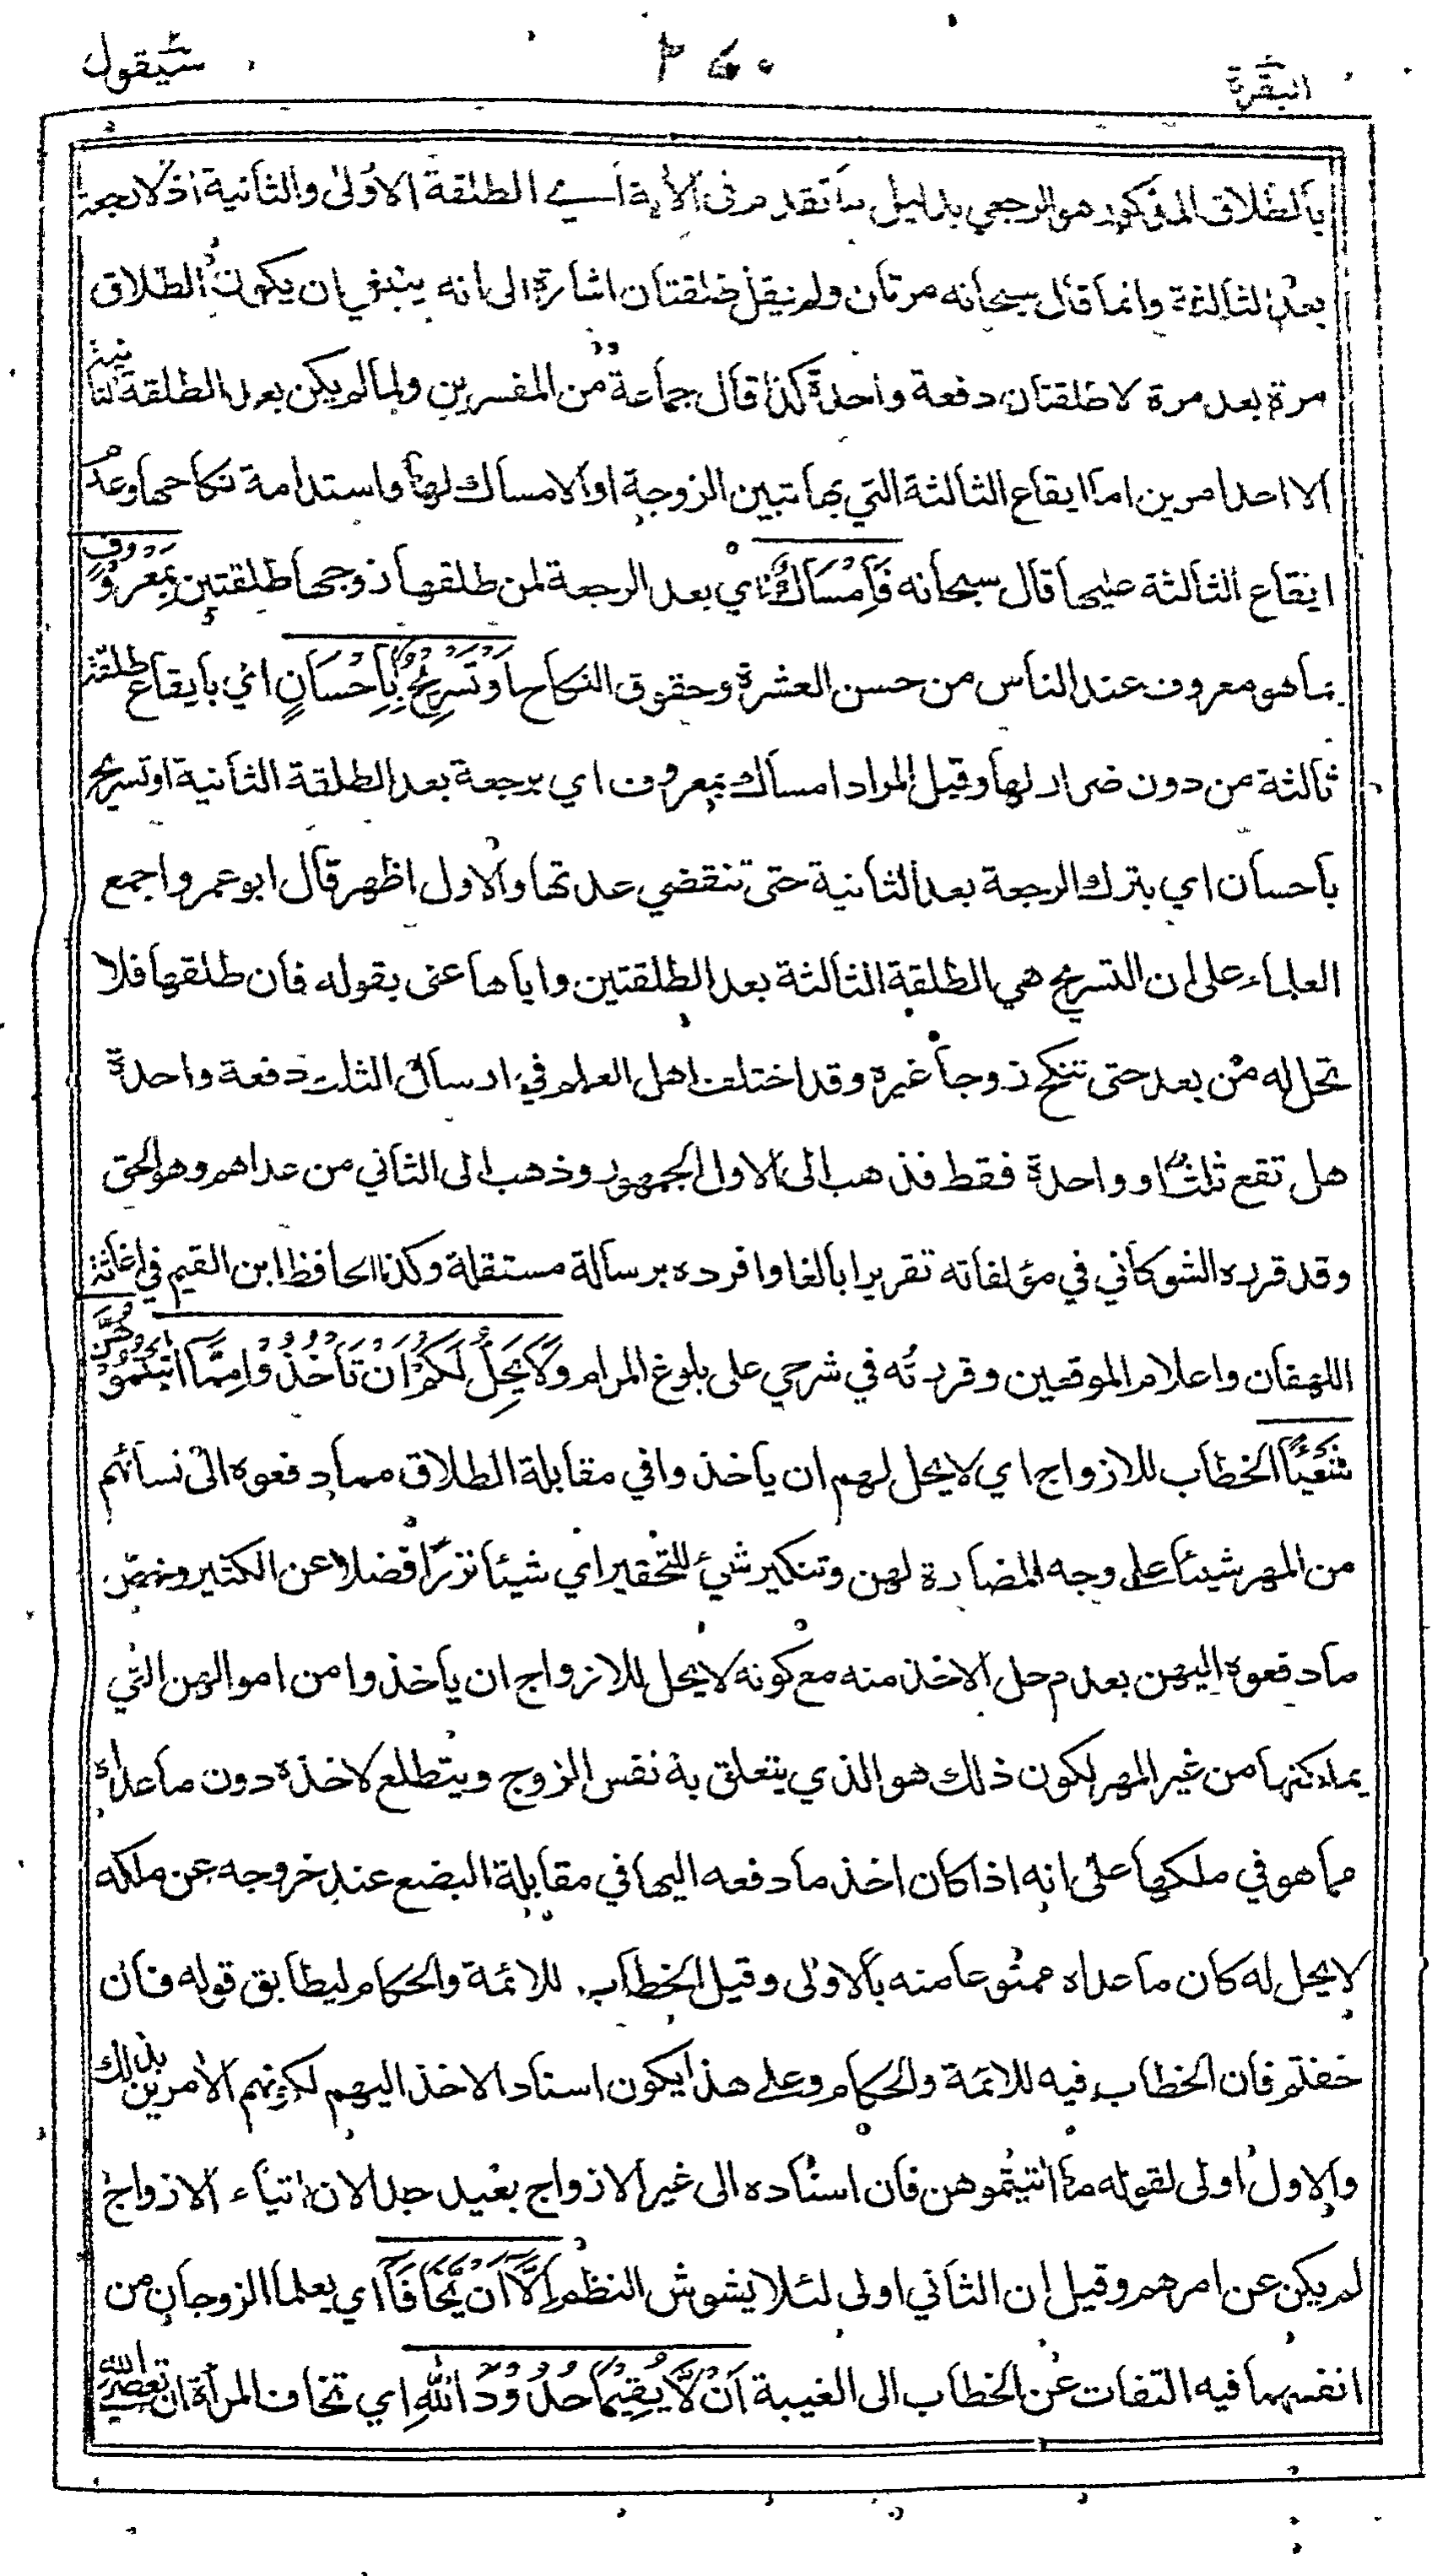 البقرة ٣٤٠ سيقول
بالطلاق المذكور هو الرجعي بدليل ما تقدم في الآية اي الطلقة الاولى والثانية اذ لا رجعة
بعد الثالثة وانما قال سبحانه مرتان ولم يقل طلقتان اشارة الى انه ينبغي ان يكون الطلاق
مرة بعد مرة لا طلقتان دفعة واحدة كذا قال جماعة من المفسرين ولما لم يكن بعد الطلقة الثانية
الا احد امرين اما ايقاع الثالثة التي بها تبين الزوجة او الامساك لها واستدامة نكاحها وعدم
ايقاع الثالثة عليها قال سبحانه فَاِمْسَاكٌ اي بعد الرجعة لمن طلقها زوجها طلقتين بِمَعْرُوْفٍ
بما هو معروف عند الناس من حسن العشرة وحقوق النكاح اَوْ تَسْرِيْحٌ بِاِحْسَانٍ اي بايقاع طلقة
ثالثة من دون ضرار لها وقيل المراد امساك بمعروف اي برجعة بعد الطلقة الثانية او تسريح
باحسان اي بترك الرجعة بعد الثانية حتى تنقضي عدتها والاول اظهر قال ابو عمر واجمع
العلماء على ان التسريح هي الطلقة الثالثة بعد الطلقتين واياها عنى بقوله فان طلقها فلا
تحل له من بعد حتى تنكح زوجا غيره وقد اختلف اهل العلم في ارسال الثلث دفعة واحدة
هل تقع ثلثا او واحدة فقط فذهب الى الاول الجمهور وذهب الى الثاني من عداهم وهو الحق
وقد قرره الشوكاني في مؤلفاته تقريرا بالغا وافرده برسالة مستقلة وكذا الحافظ ابن القيم في اغاثة
اللهفان واعلام الموقعين وقررته في شرحي على بلوغ المرام وَلَا يَحِلُّ لَكُمْ اَنْ تَأْخُذُوْا مِمَّا اٰتَيْتُمُوْهُنَّ
شَيْئًا الخطاب للازواج اي لا يحل لهم ان ياخذوا في مقابلة الطلاق مما دفعوه الى نسائهم
من المهر شيئا على وجه المضارة لهن وتنكير شيئ للتحقير اي شيئا نزرا فضلا عن الكثير وخص
ما دفعوه اليهن بعدم حل الاخذ منه مع كونه لا يحل للازواج ان ياخذوا من اموالهن التي
يملكنها من غير المهر لكون ذلك هو الذي يتعلق به نفس الزوج ويتطلع لاخذه دون ما عداه
مما هو في ملكها على انه اذا كان اخذ ما دفعه اليها في مقابلة البضع عند خروجه عن ملكه
لا يحل له كان ما عداه ممنوعا منه بالاولى وقيل الخطاب للائمة والحكام ليطابق قوله فان
خفتم فان الخطاب فيه للائمة والحكام وعلى هذا يكون اسناد الاخذ اليهم لكونهم الامرين بذلك
والاول اولى لقوله مما اتيتموهن فان اسناده الى غير الازواج بعيد جدا لان ايتاء الازواج
لم يكن عن امرهم وقيل ان الثاني اولى لئلا يشوش النظم اِلَّا اَنْ يَّخَافَا اي يعلما الزوجان من
انفسهما فيه التفات عن الخطاب الى الغيبة اَنْ لَّا يُقِيْمَا حُدُوْدَ اللهِ اي تخاف المرأة ان تعصي الله